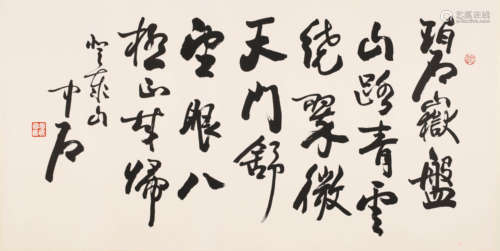 碧嶽盤
山路青雲
繞翠微
天門舒
望眼八
極正歸
登泰山
中石